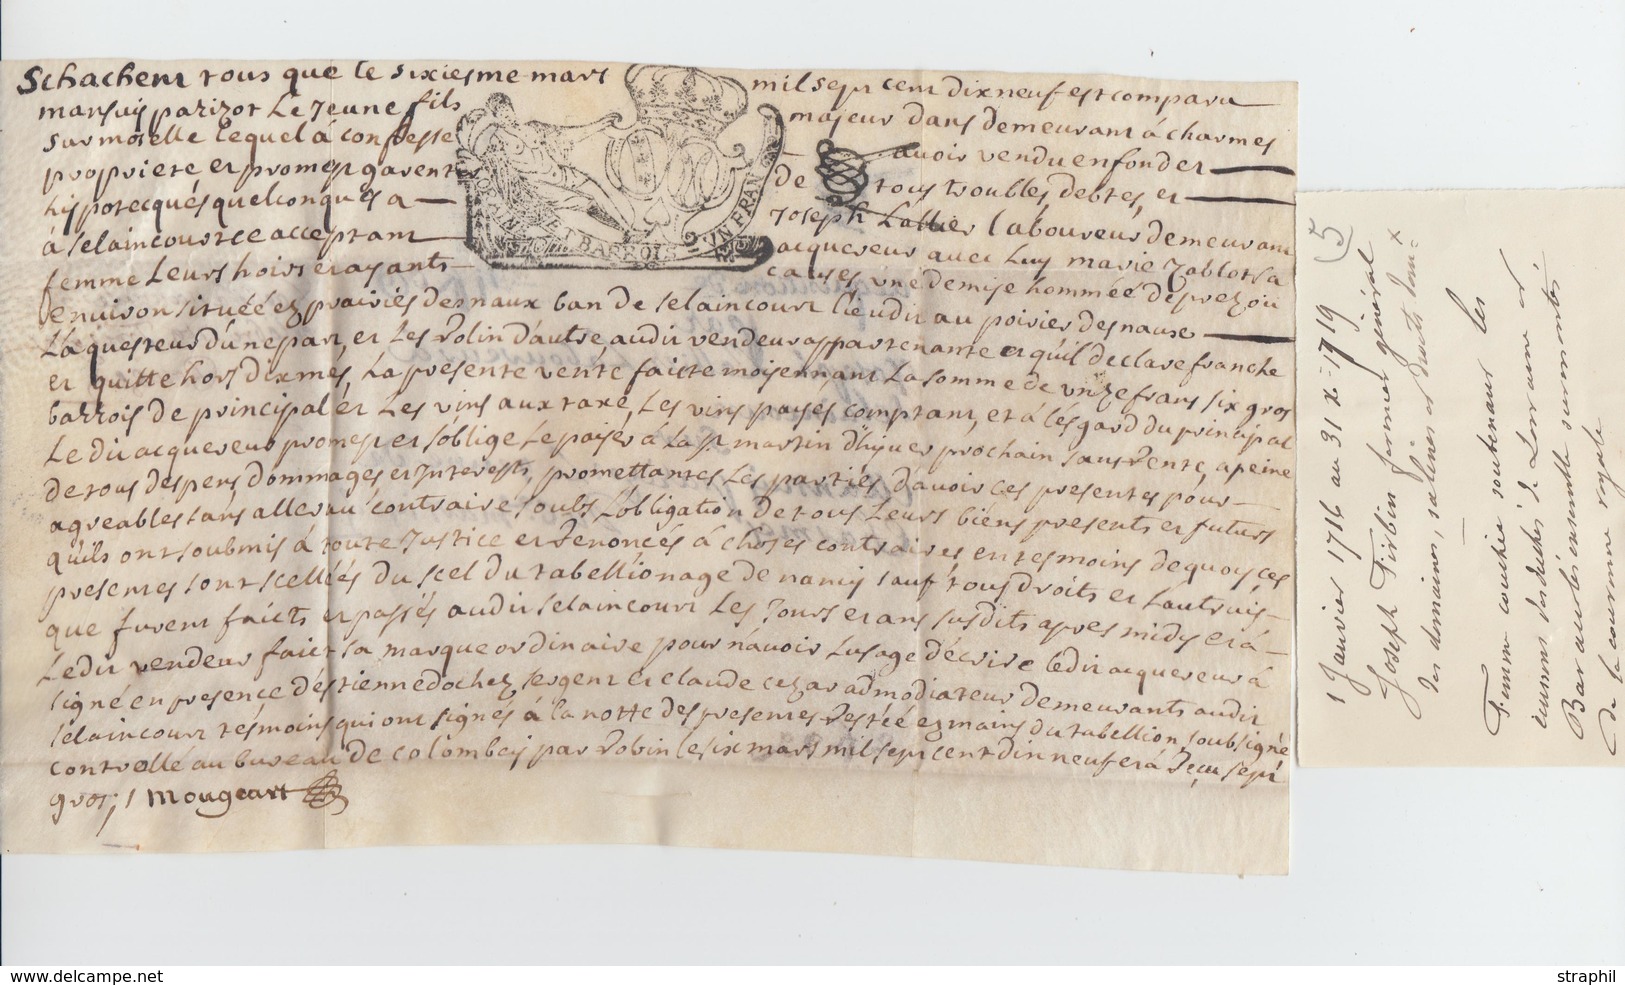 Schachent tous que le sixiesme mars mil sept cent dix neuf est comparu
mansuis parizot Le Jeune fils majeur dans demeurant à charmes
sur moselle lequel à confesse avoir vendu en fond et
propriete et promest garentir de tous troubles debtes, et
hispotecqués quelconques a Joseph Lallier laboureur demeurant
à selaincourt ce acceptant acquereur avec Luy marie Jablot sa
femme Leurs hoirs et ayants causes une demise hommée de prez ou
environ située ez prairiés desnaux ban de selaincourt lieudit au poirier des naux
La questeur d'une part, et Les Robin d'autre audit vendeur appartenante et quil declare franche
et quitte hors dixmes, La presente vente faicte moiennant La somme de unze frans six gros
barrois de principal et Les vins aux taxe, Les vins payés comptant, et à lésgard du principal
Le dit acquereur promest et s'oblige Le paiér à La St martin d'hyver prochain sans Rente, a peine
de tous despens dommages et Interests, promettantes Les partiés d'avoir ces presentes pour
agreables sans aller au contraire soubs L'obligation de tous Leurs biens presents et futurs
qu'ils ont soubmis à toute Justice et Renoncés à choses contraires, en tesmoins de quoy ces
presentes sont scellées du scel du tabellionage de nancy sauf tous droits et Lautruis
que furent faicts et passés audit selaincourt Les Jours et ans susdits apres midy et à
Ledit vendeur faict sa marque ordinaire pour n'avoir Lusage d'écrire ledit acquereur à
signé en presence d'éstienne dochez, sergent et claude cezar admodiateur demeurants audit
selaincourt tesmoins qui ont signés à la notte des presentes Restéé ez mains du tabellion soubsigné
controllé au bureau de colombey par Robin le six mars mil sept cent dix neuf et à Reçu sept
gros; / Mougeart
LORRAINE ET BARROIS UN FRAN
(5)
1 Janvier 1716 au 31 Xe 1719
Joseph Firbin fermier général
des domaines, salines et droits
Femme couchée soutenant les
écussons des duchés de Lorraine et
Bar accolés ensemble surmontés
de la couronne royale
straphil